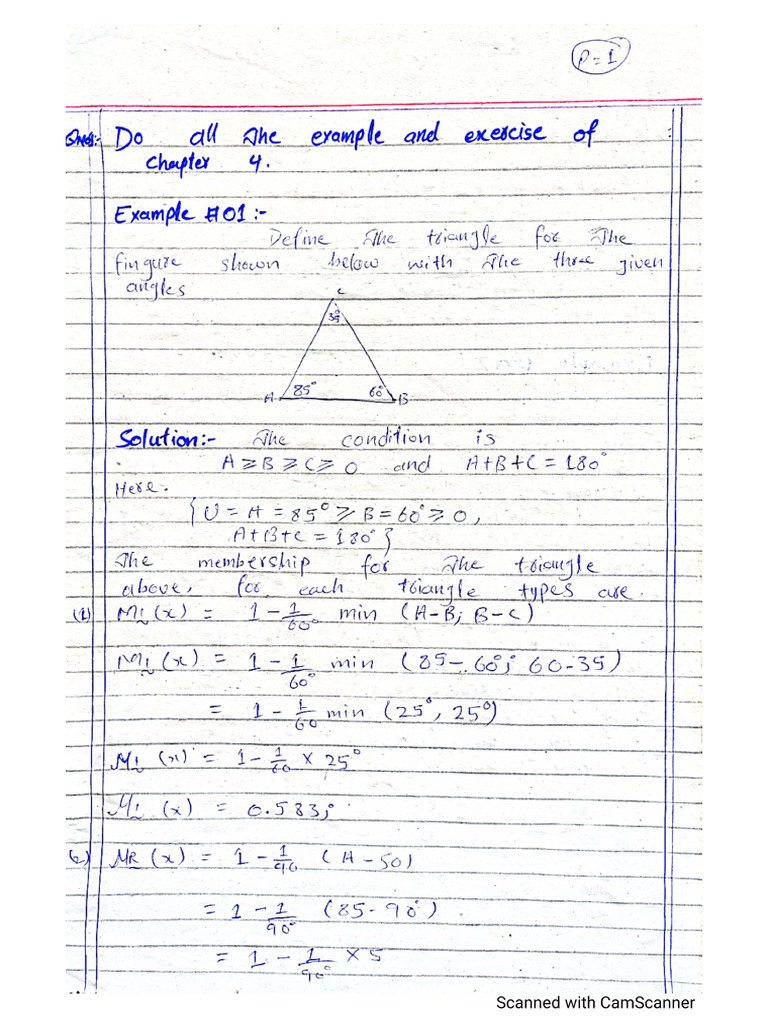 P=1
Ques:- Do all The example and exercise of
Chapter 4.
Example #01:-
Define The triangle for The
fingure shown below with The three given
angles
C
35°
A 85° 60° B
Solution:- The condition is
A ⩾ B ⩾ C ⩾ 0 and A+B+C = 180°
Here.
{U = A = 85° ⩾ B = 60° ⩾ 0,
A+B+C = 180°}
The membership for The triangle
above, for each triangle types are.
(1) Mi(x) = 1 - 1/60° min (A-B; B-C)
Mi(x) = 1 - 1/60° min (85-60; 60-35)
= 1 - 1/60 min (25°, 25°)
Mi(x) = 1 - 1/60 × 25°
Mi(x) = 0.583;
(2) MR(x) = 1 - 1/90 (A-50)
= 1 - 1/90° (85-90°)
= 1 - 1/90° × 5
Scanned with CamScanner